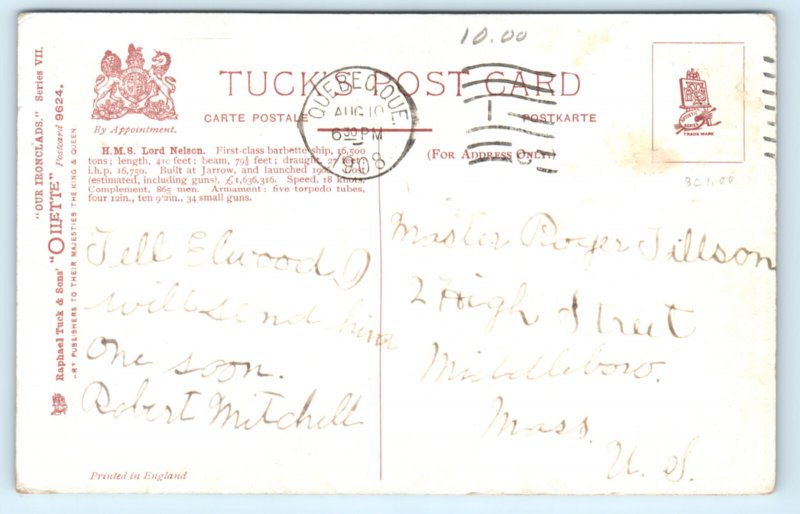 10.00
"OUR IRONCLADS." Series VII.
Raphael Tuck & Sons' "OILETTE" Postcard 9624.
ART PUBLISHERS TO THEIR MAJESTIES THE KING & QUEEN.
By Appointment.
TUCK'S POST CARD
CARTE POSTALE
POSTKARTE
(FOR ADDRESS ONLY.)
QUEBEC QUE.
AUG 10
6 30 PM
1908
TRADE MARK
H.M.S. Lord Nelson. First-class barbette ship, 16,500
tons; length, 410 feet; beam, 79½ feet; draught, 27 feet;
i.h.p. 16,750. Built at Jarrow, and launched 1906. Cost
(estimated, including guns), £1,636,316. Speed, 18 knots.
Complement, 865 men. Armament: five torpedo tubes,
four 12in., ten 9'2in., 34 small guns.
BC 1.00
Tell Elwood I
will send him
one soon.
Robert Mitchell
Master Roger Tillson
2 High Street
Middleboro.
Mass.
U. S.
Printed in England